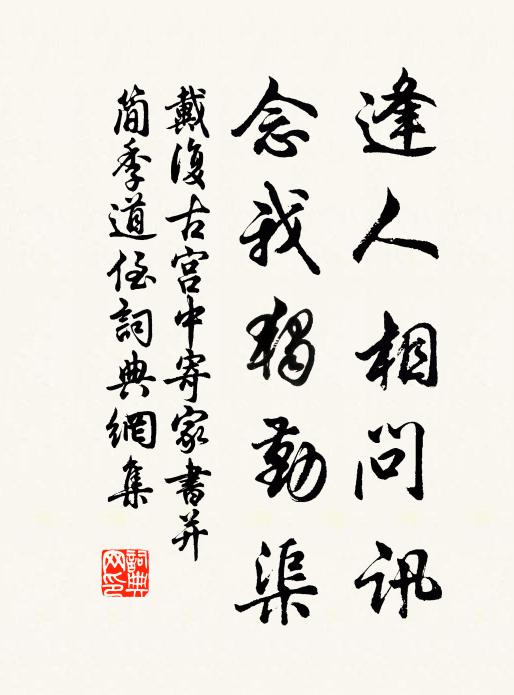 逢人相問訊
念我獨勤渠
戴復古宮中寄家書并
簡季道侄詞典網集
詞典
网印